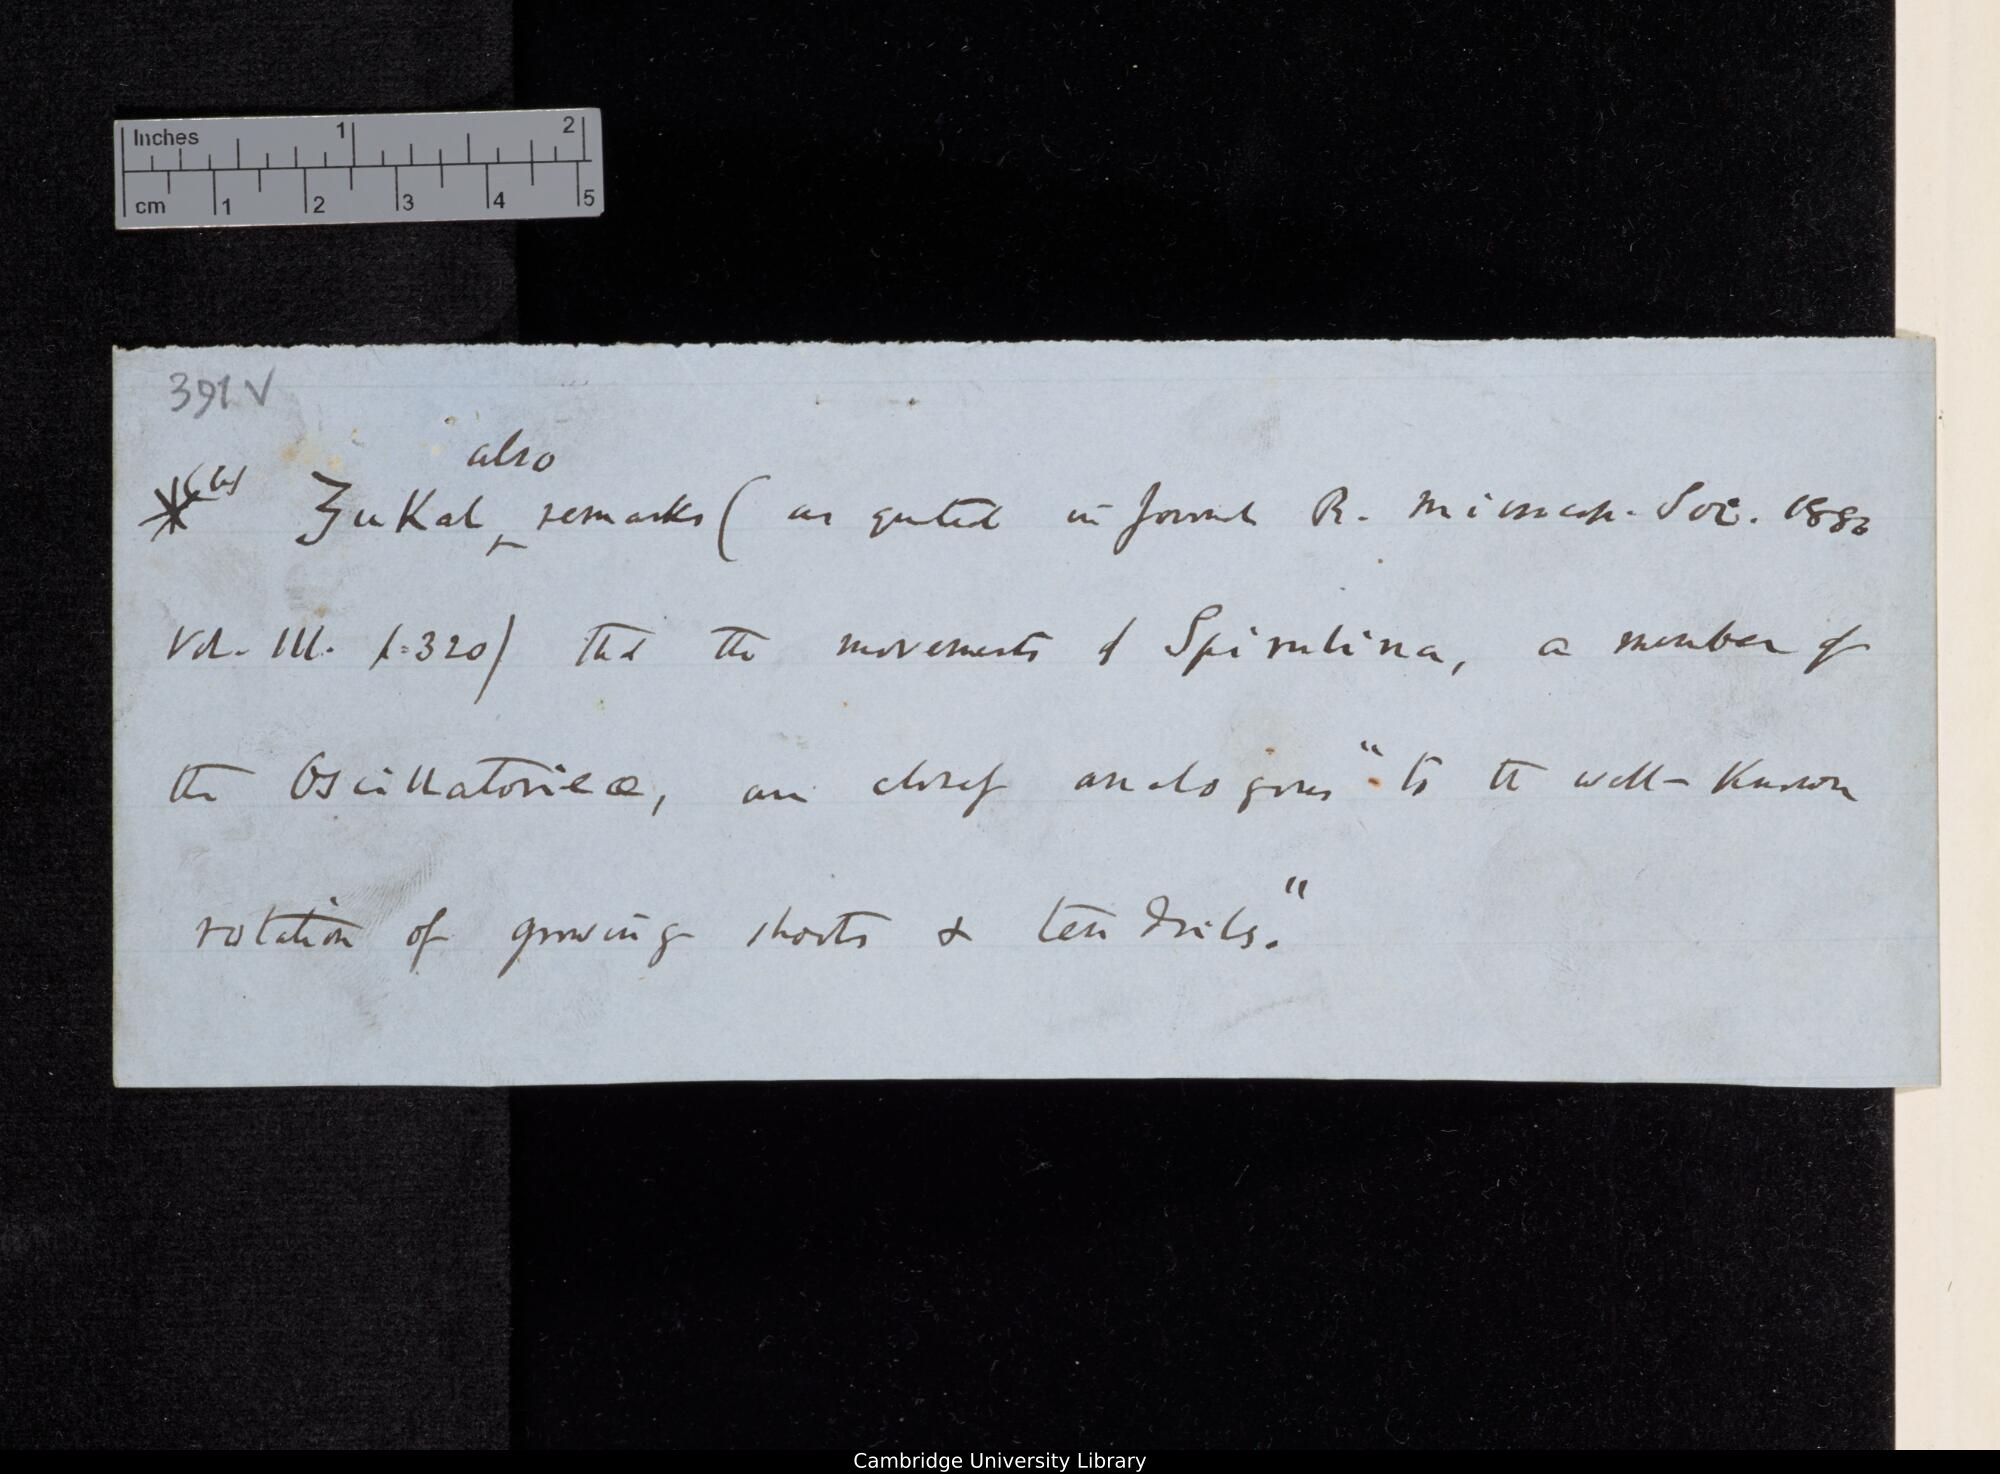 Inches 1 2
cm 1 2 3 4 5
391 V
also
*(b) Zukal remarks (as quoted in Journal R. Microscop. Soc. 1880
Vol. III. p. 320) that the movements of Spirulina, a member of
the Oscillatorieæ, are closely analogous "to the well-known
rotation of growing shoots & tendrils."
Cambridge University Library